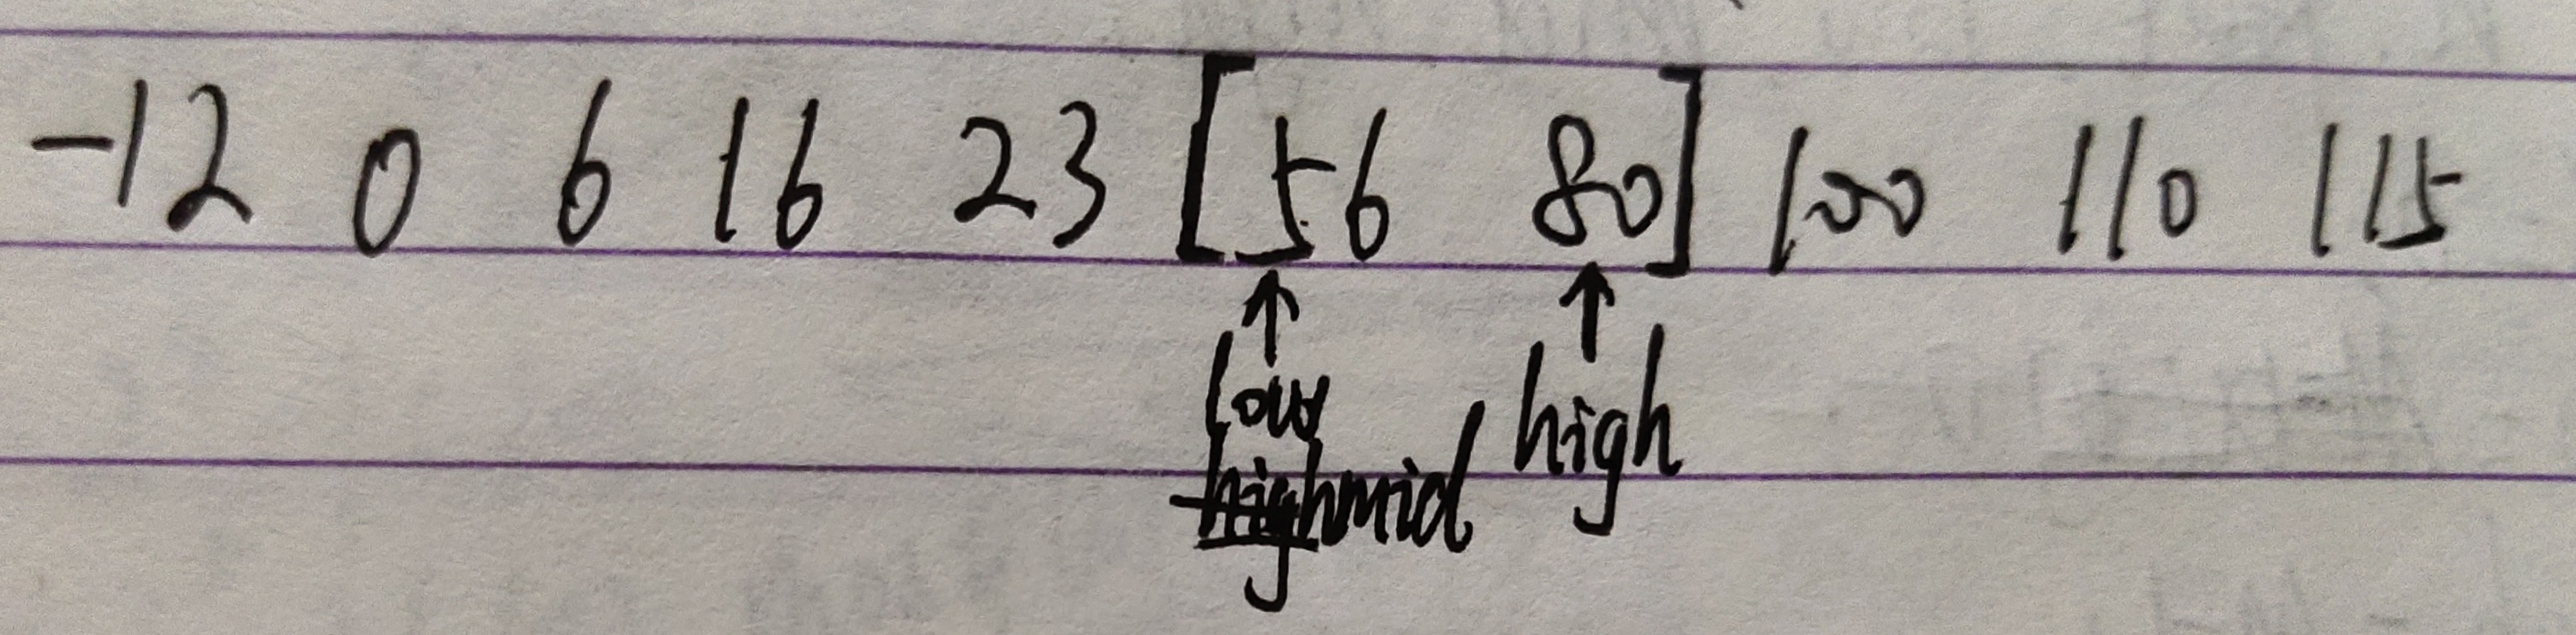 -12 0 6 16 23 [56 80] 100 110 115
↑ ↑
low high
high mid